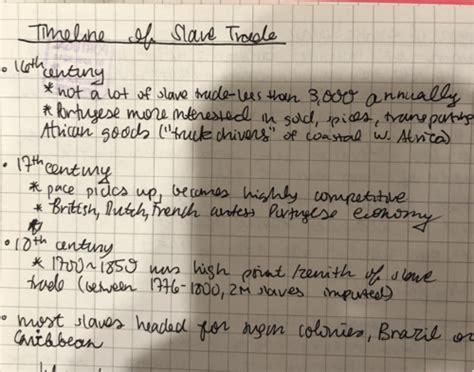 Timeline of Slave Trade
• 16th century
* not a lot of slave trade - less than 3,000 annually
* Portugese more interested in gold, spices, transporting
African goods ("truck drivers" of coastal W. Africa)
• 17th century
* pace picks up, becomes highly competitive
* British, Dutch, French contest Portugese economy
• 18th century
* 1700~1850 was high point/zenith of slave
trade (between 1776-1800, 2M slaves imported)
• most slaves headed for sugar colonies, Brazil or
Caribbean